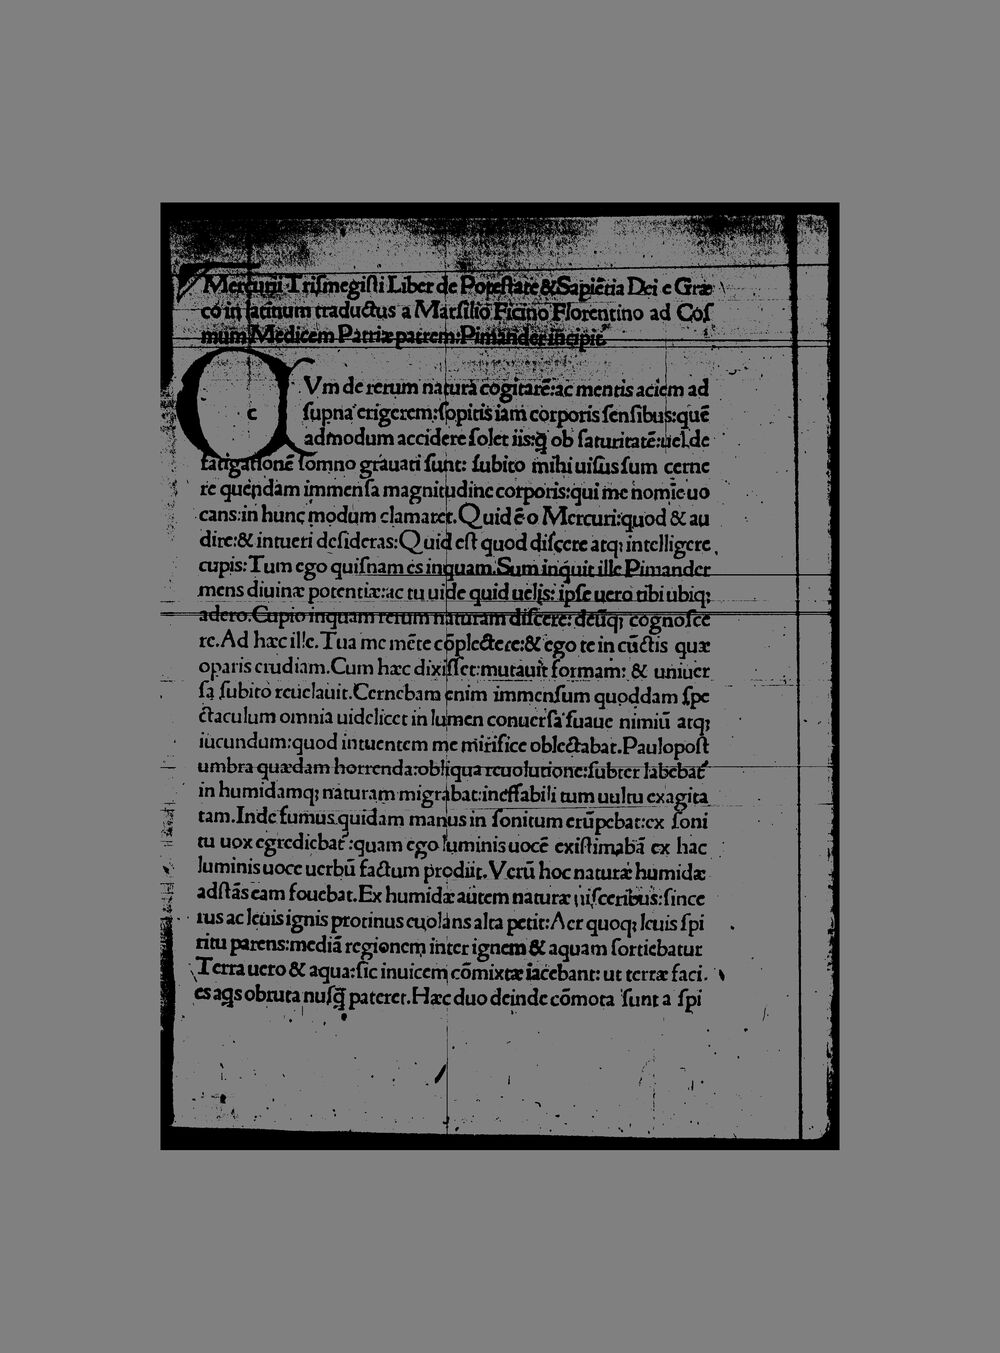 Mercurii Triſmegiſti Liber de Poteſtate & Sapiētia Dei e Græ
co in latinum traductus a Marſilio Ficino Florentino ad Coſ
mum Medicem Patriæ patrem: Pimander incipit.
c
Vm de rerum natura cogitarē: ac mentis aciem ad
ſupna erigerem: ſopitis iam corporis ſenſibus: quē
admodum accidere ſolet iis: q̄ ob ſaturitatē: uel de
fatigationē ſomno grauati ſunt: ſubito mihi uiſus ſum cerne
re quendam immenſa magnitudine corporis: qui me nomīe uo
cans: in hunc modum clamaret. Quid ē o Mercuri: quod & au
dire: & intueri deſideras: Quid eſt quod diſcere atq; intelligere
cupis: Tum ego quiſnam es inquam. Sum inquit ille Pimander
mens diuinæ potentiæ: ac tu uide quid uelis: ipſe uero tibi ubiq;
adero. Cupio inquam rerum naturam diſcere: deūq; cognoſce
re. Ad hæc ille. Tua me mēte cōplectere: & ego te in cūctis quæ
optaris erudiam. Cum hæc dixiſſet: mutauit formam: & uniuer
ſa ſubito reuelauit. Cernebam enim immenſum quoddam ſpe
ctaculum omnia uidelicet in lumen conuerſa ſuaue nimiū atq;
iucundum: quod intuentem me mirifice oblectabat. Paulopoſt
umbra quædam horrenda: obliqua reuolutione: ſubter labebat̄
in humidamq; naturam migrabat: ineffabili tum uultu exagita
tam. Inde fumus quidam manus in ſonitum erūpebat: ex ſoni
tu uox egrediebat̄: quam ego luminis uocē exiſtimabā ex hac
luminis uoce uerbū factum prodiit. Verū hoc naturæ humidæ
adſtās eam fouebat. Ex humidæ autem naturæ uiſceribus: ſince
rus ac leuis ignis protinus euolans alta petit: Aer quoq; leuis ſpi
ritu parens: mediā regionem inter ignem & aquam ſortiebatur
Terra uero & aqua: ſic inuicem cōmixtæ iacebant: ut terræ faci.
es aq̄s obruta nuſq̄ pateret. Hæc duo deinde cōmota ſunt a ſpi